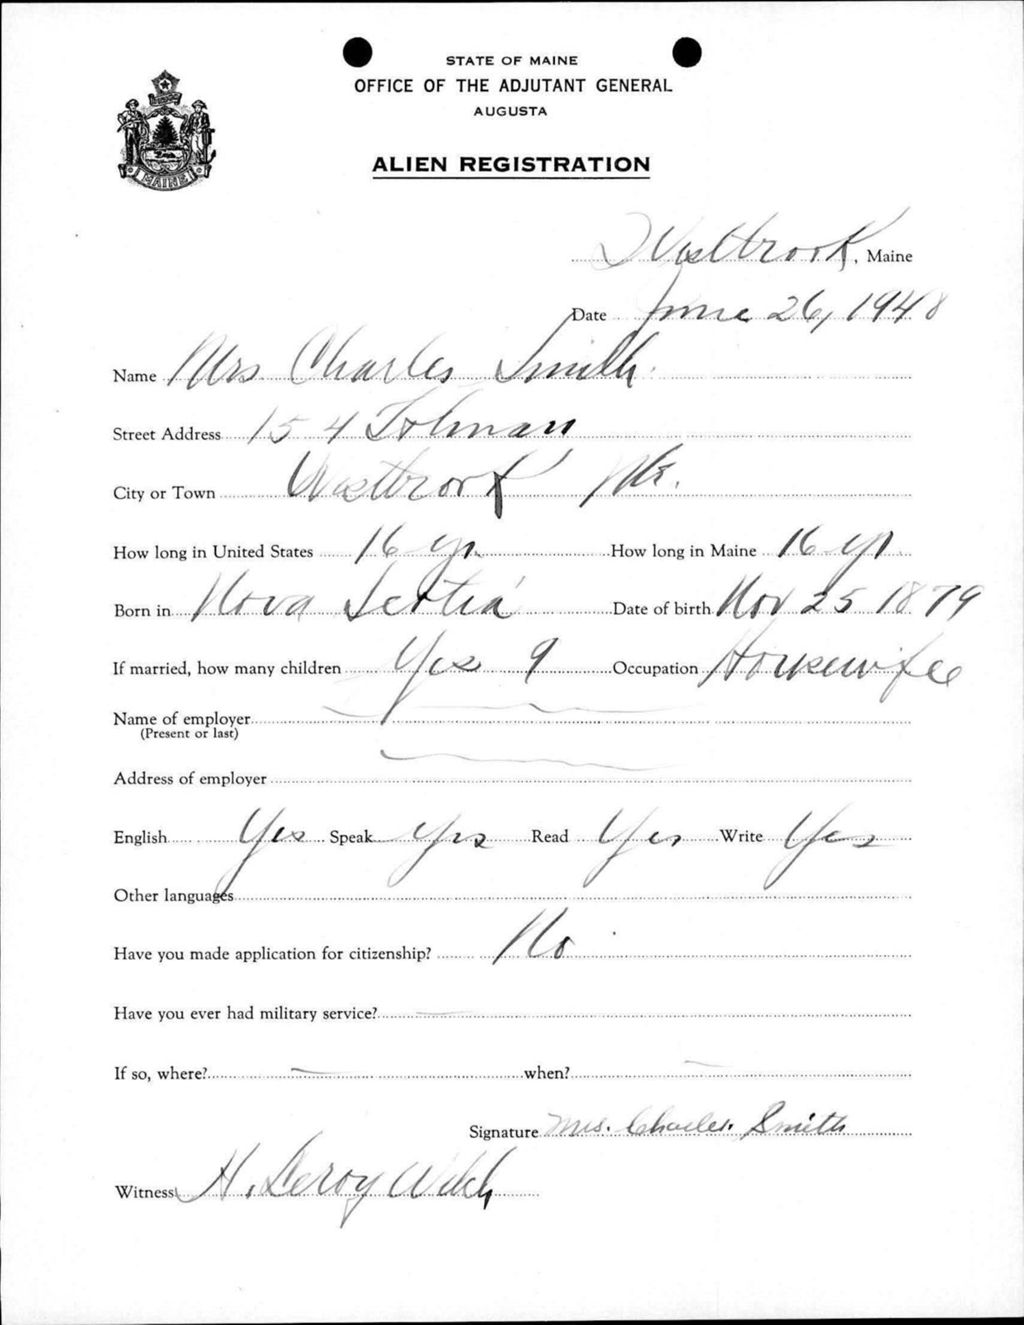 STATE OF MAINE
OFFICE OF THE ADJUTANT GENERAL
AUGUSTA
ALIEN REGISTRATION
MAINE
Westbrook, Maine
Date June 26, 1940
Name Mrs Charles Smith
Street Address 154 Tolman
City or Town Westbrook Me.
How long in United States 16 yr. How long in Maine 16 yr
Born in Nova Scotia Date of birth Nov 25 1879
If married, how many children Yes 9 Occupation Housewife
Name of employer
(Present or last)
Address of employer
English Yes Speak Yes Read Yes Write Yes
Other languages
Have you made application for citizenship? No
Have you ever had military service? —
If so, where? — when? —
Signature Mrs. Charles Smith
Witness H. Leroy Welch